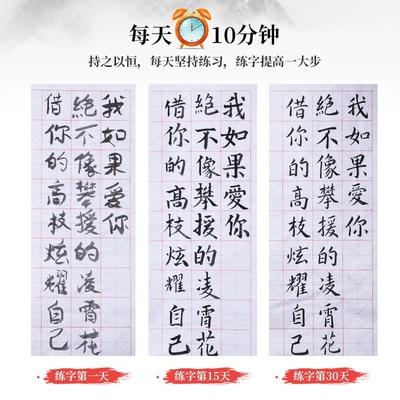 每天10分钟
持之以恒，每天坚持练习，练字提高一大步
我如果愛你
絕不像攀援的凌霄花
借你的高枝炫耀自己
我如果愛你
絕不像攀援的凌霄花
借你的髙枝炫耀自己
我如果愛你
絕不像攀援的凌霄花
借你的高枝炫耀自己
练字第一天
练字第15天
练字第30天